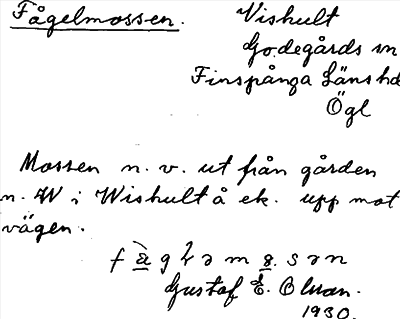 Fågelmossen.
Vishult
Godegårds sn
Finspånga Länshd
Ögl
Mossen n. v. ut från gården
n. W i Wishult å ek. upp mot
vägen.
Gustaf E. Olson.
1930.